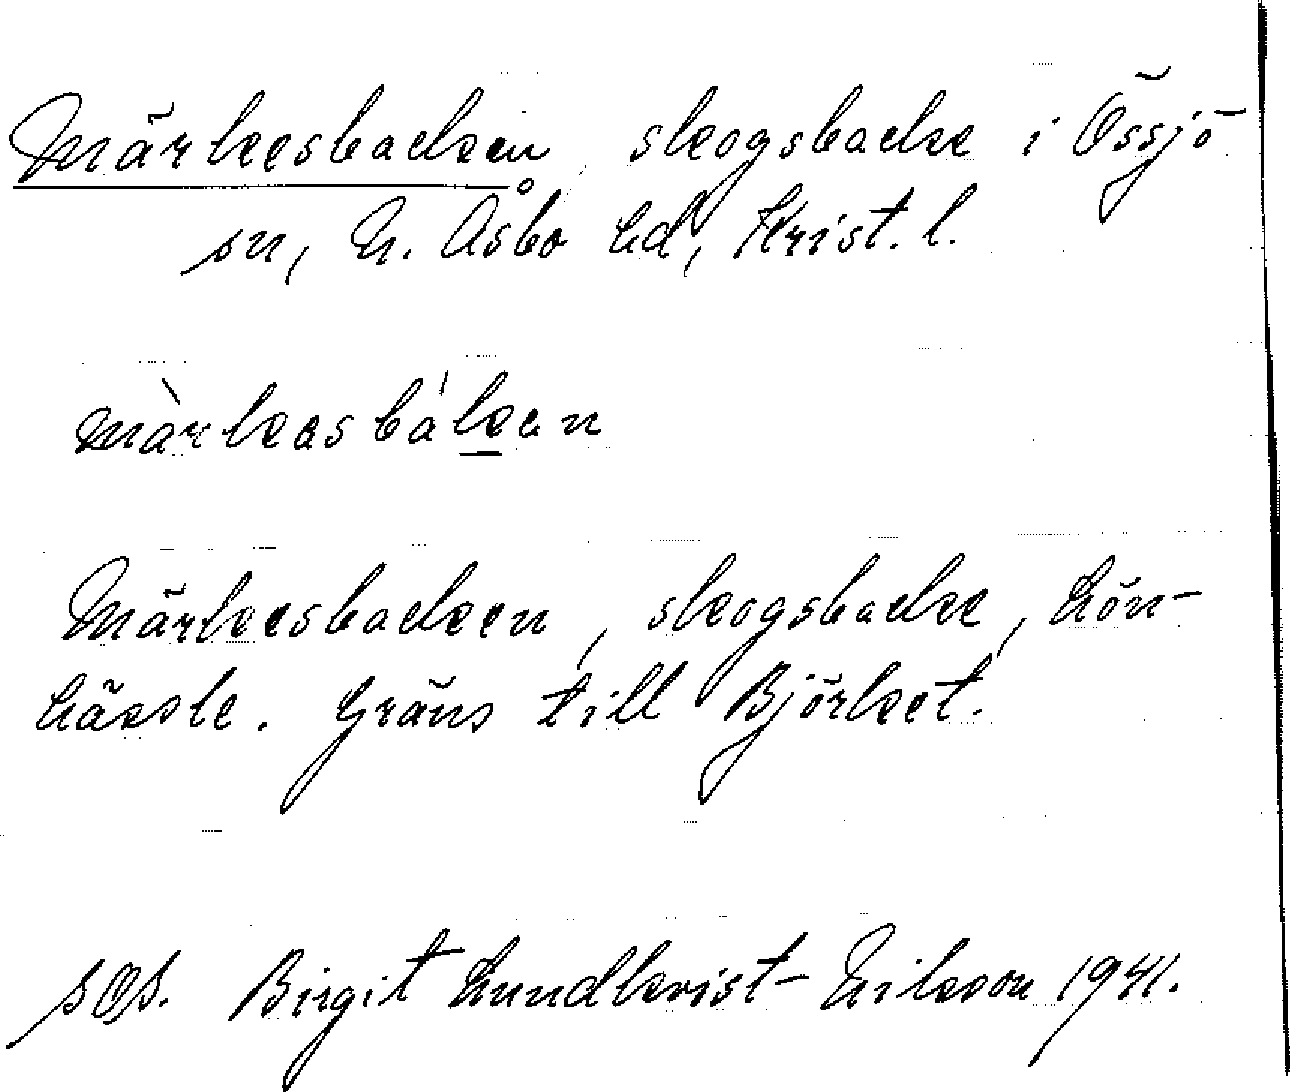 Märkesbacken, skogsbacke i Össjö
sn, N. Åsbo hd, Krist. l.
màrkasbákan
Märkesbacken, skogsbacke, Lön-
hässle. Gräns till Björket.
SOS. Birgit Lundkvist-Nilsson 1941.